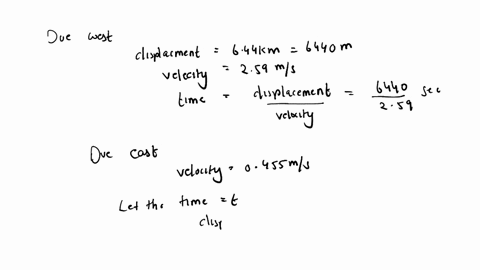 Due west
displacment = 6.44km = 6440 m
velocity = 2.59 m/s
time = displacement / velocity = 6440 / 2.59 sec
Due east
velocity = 0.455 m/s
Let the time = t
disp